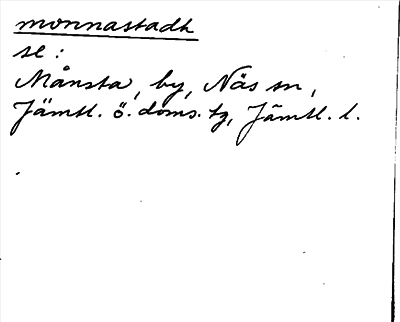 monnastadh
se:
Månsta, by, Näs sn,
Jämtl. ö. doms. tg, Jämtl. l.